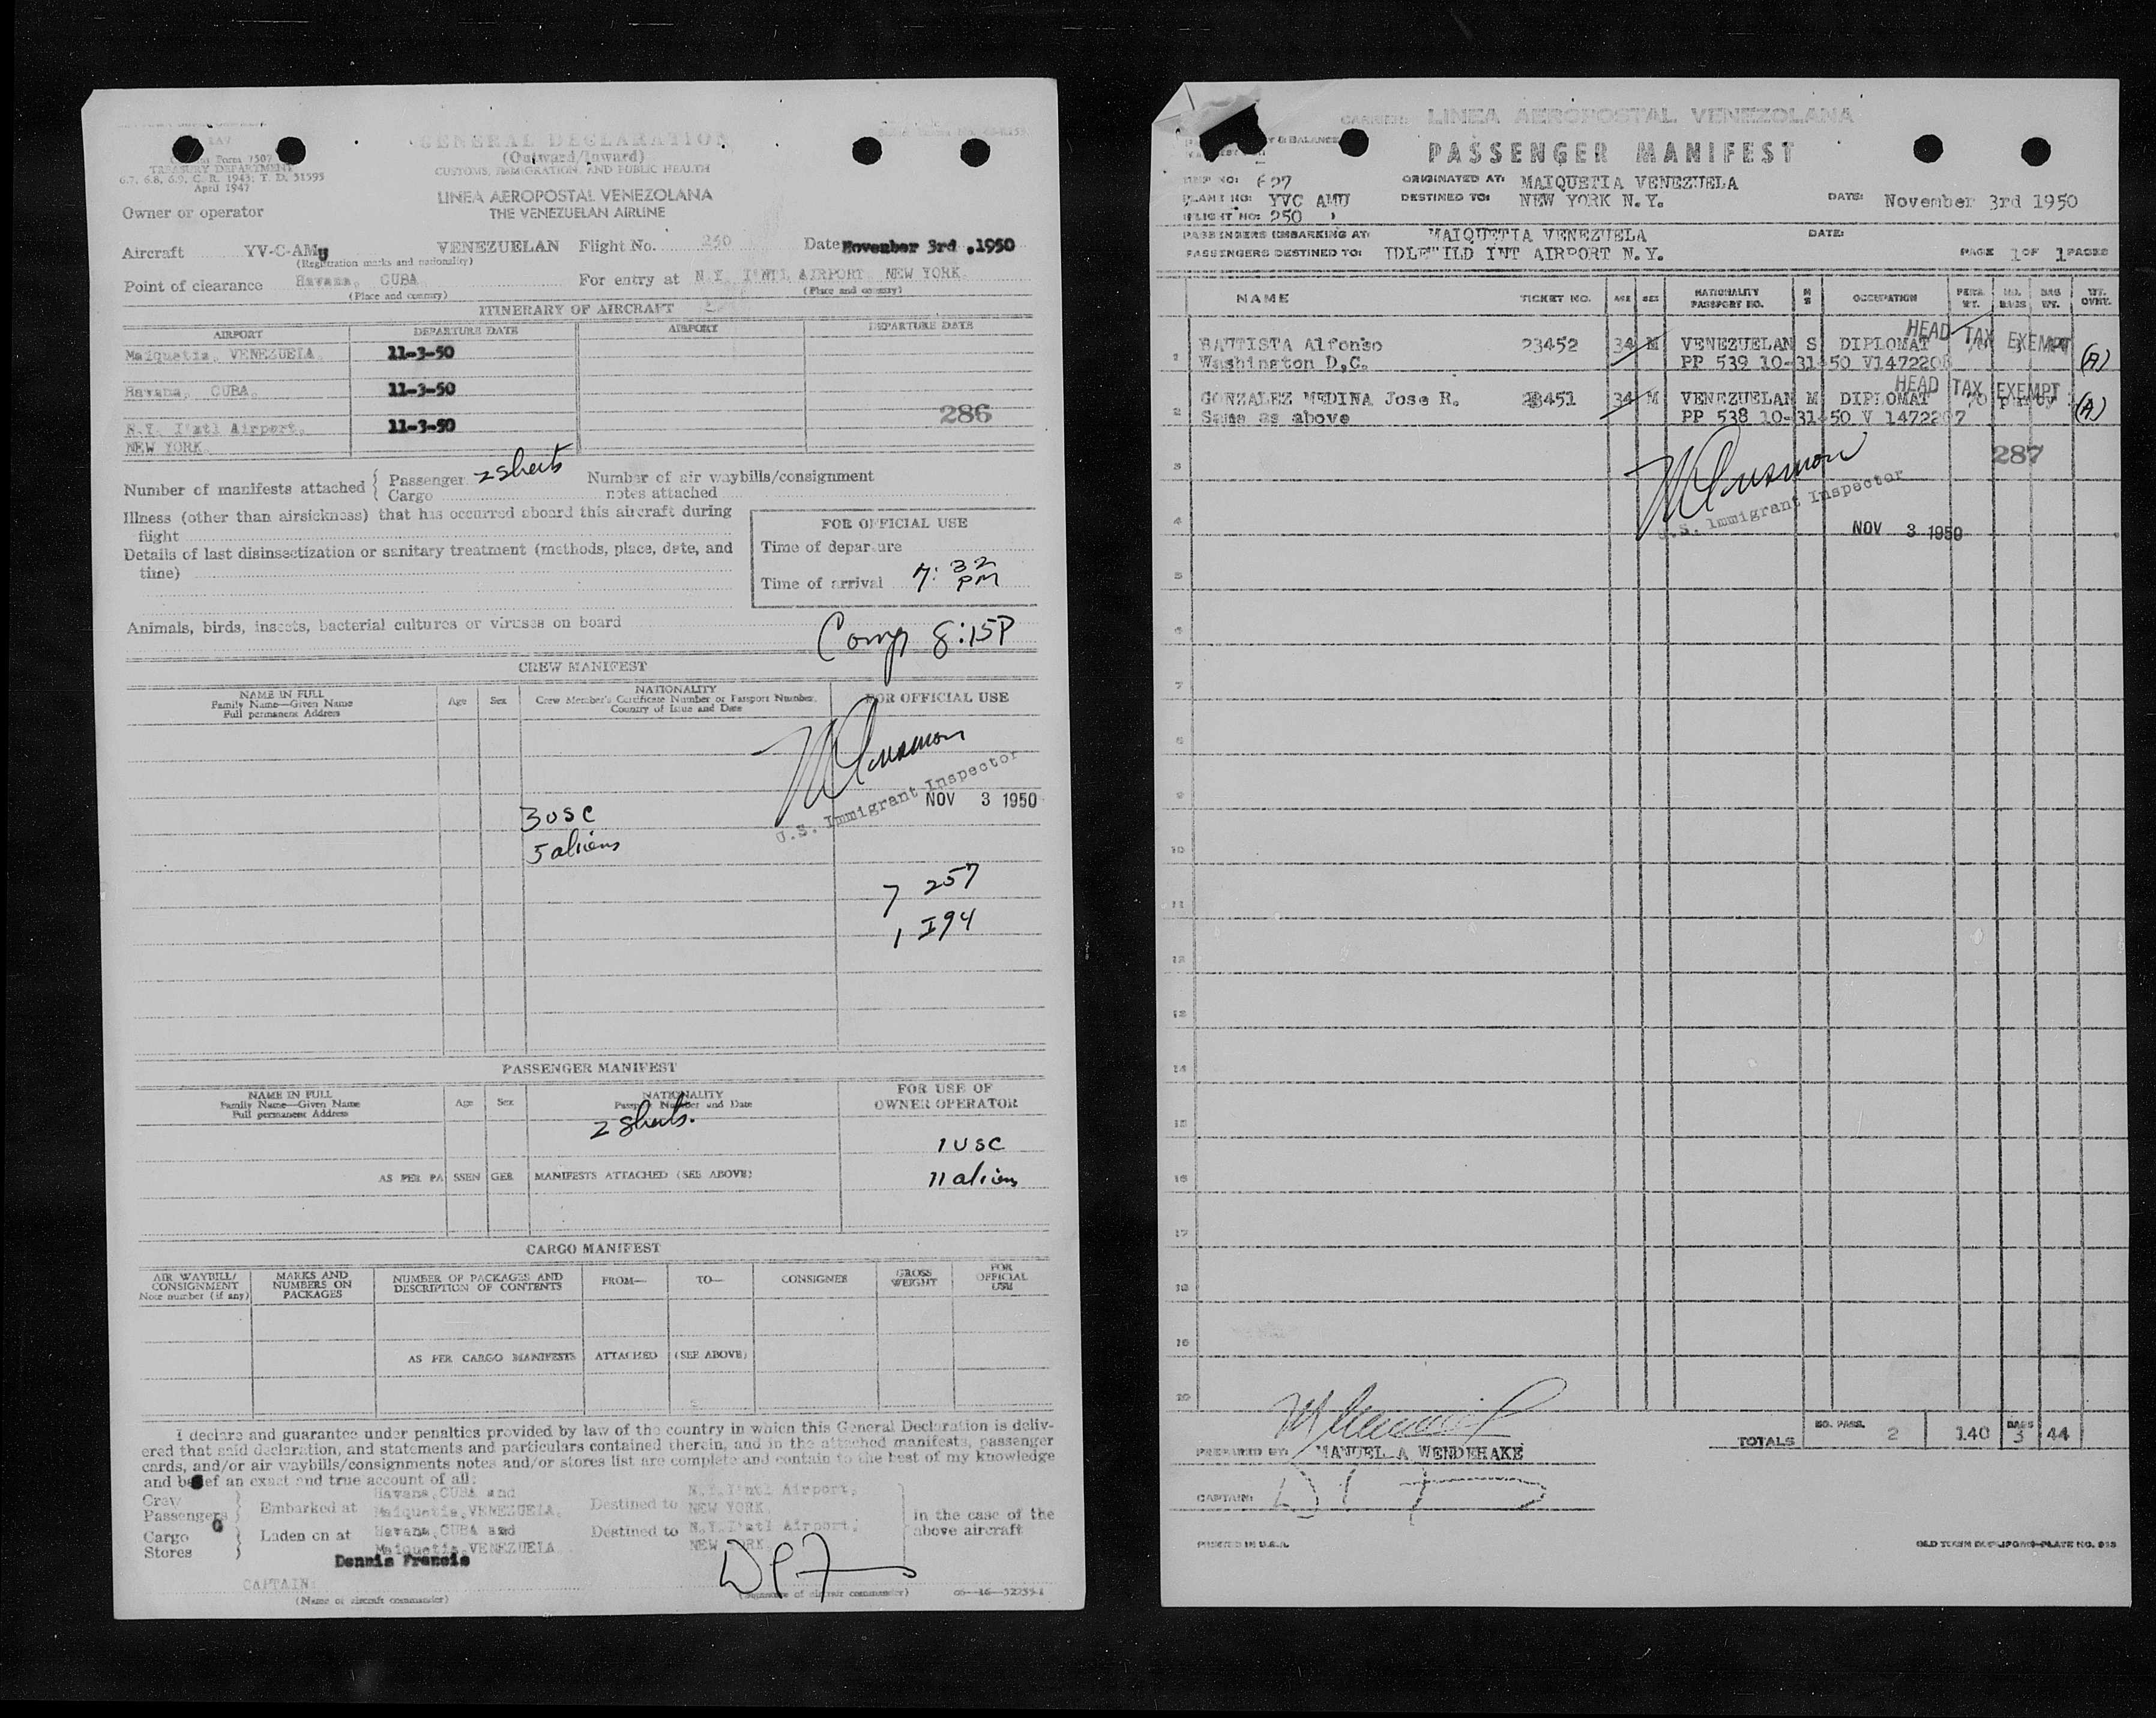 LAV
Customs Form 7507
TREASURY DEPARTMENT
6.7, 6.8, 6.9, C. R. 1943; T. D. 51595
April 1947
GENERAL DECLARATION
(Outward/Inward)
CUSTOMS, IMMIGRATION, AND PUBLIC HEALTH
LINEA AEROPOSTAL VENEZOLANA
THE VENEZUELAN AIRLINE
Owner or operator
Aircraft YV-C-AMU VENEZUELAN Flight No. 250 Date November 3rd ,1950
(Registration marks and nationality)
Point of clearance Havana, CUBA For entry at N.Y. I'NTL AIRPORT NEW YORK
(Place and country) (Place and country)
ITINERARY OF AIRCRAFT
AIRPORT DEPARTURE DATE AIRPORT DEPARTURE DATE
Maiquetia, VENEZUELA 11-3-50
Havana, CUBA. 11-3-50
286
N.Y. I'ntl Airport, 11-3-50
NEW YORK
Number of manifests attached { Passenger 2 sheets Number of air waybills/consignment
Cargo notes attached
Illness (other than airsickness) that has occurred aboard this aircraft during
flight
Details of last disinsectization or sanitary treatment (methods, place, date, and
time)
FOR OFFICIAL USE
Time of departure
Time of arrival 7:32 PM
Animals, birds, insects, bacterial cultures or viruses on board
Comp 8:15P
CREW MANIFEST
NAME IN FULL
Family Name—Given Name
Full permanent Address
Age Sex
NATIONALITY
Crew Member's Certificate Number or Passport Number,
Country of Issue and Date
FOR OFFICIAL USE
U.S. Immigrant Inspector
NOV 3 1950
3 USC
5 aliens
7 257
1 I94
PASSENGER MANIFEST
NAME IN FULL
Family Name—Given Name
Full permanent Address
Age Sex
NATIONALITY
Passport Number and Date
FOR USE OF
OWNER OPERATOR
2 sheets.
1 USC
AS PER PASSENGER MANIFESTS ATTACHED (SEE ABOVE)
11 aliens
CARGO MANIFEST
AIR WAYBILL/
CONSIGNMENT
Note number (if any)
MARKS AND
NUMBERS ON
PACKAGES
NUMBER OF PACKAGES AND
DESCRIPTION OF CONTENTS
FROM— TO— CONSIGNEE
GROSS
WEIGHT
FOR
OFFICIAL
USE
AS PER CARGO MANIFESTS ATTACHED (SEE ABOVE)
I declare and guarantee under penalties provided by law of the country in which this General Declaration is deliv-
ered that said declaration, and statements and particulars contained therein, and in the attached manifests, passenger
cards, and/or air waybills/consignments notes and/or stores list are complete and contain to the best of my knowledge
and belief an exact and true account of all:
Crew
Passengers
Embarked at Havana, CUBA and
Maiquetia, VENEZUELA.
Destined to N.Y. I'ntl Airport,
NEW YORK.
Cargo
Stores
Laden on at Havana, CUBA and
Maiquetia, VENEZUELA
Destined to N.Y. I'ntl Airport,
NEW YORK
In the case of the
above aircraft
Dennis Francis
CAPTAIN:
(Name of aircraft commander)
(Signature of aircraft commander)
CARRIER: LINEA AEROPOSTAL VENEZOLANA
PASSENGER MANIFEST
TRIP NO: 627
PLANE NO: YVC AMU
FLIGHT NO: 250
ORIGINATED AT: MAIQUETIA VENEZUELA
DESTINED TO: NEW YORK N.Y.
DATE: November 3rd 1950
PASSENGERS EMBARKING AT: MAIQUETIA VENEZUELA DATE:
PASSENGERS DESTINED TO: IDLEWILD INT AIRPORT N.Y. PAGE 1 OF 1 PAGES
NAME TICKET NO. AGE SEX NATIONALITY PASSPORT NO. M S OCCUPATION PERS. WT. NO. BAGS BAG WT. WT. OVHT.
HEAD TAX EXEMPT
1 BAUTISTA Alfonso 23452 34 M VENEZUELAN S DIPLOMAT
Washington D.C. PP 539 10-31-50 V1472208 (A)
HEAD TAX EXEMPT
2 GONZALEZ MEDINA Jose R. 23451 34 M VENEZUELAN M DIPLOMAT 70
Same as above PP 538 10-31-50 V 1472207 (A)
287
3
U.S. Immigrant Inspector
4
NOV 3 1950
5
6
7
8
9
10
11
12
13
14
15
16
17
18
19
20
TOTALS NO. PASS. 2 140 BAGS 3 44
PREPARED BY: MANUEL A WENDEHAKE
CAPTAIN:
PRINTED IN U.S.A.